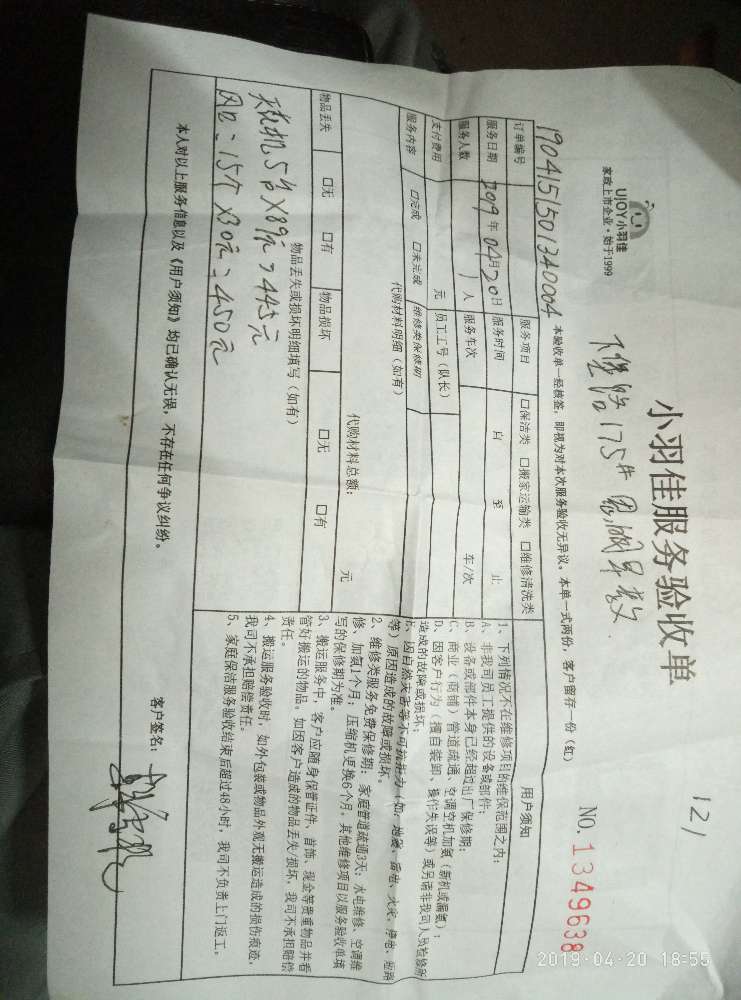 121
UJOY小羽佳
家政上市企业·始于1999
小羽佳服务验收单
NO. 1349638
175#
本验收单一经核签,即视为对本次服务验收无异议。本单一式两份,客户留存一份(红)
订单编号 1904151501340004 服务项目 口保洁类 口搬家运输类 口维修清洗类
服务日期 2019年04月20日 服务时间 自 至 止
服务人数 1人 服务车次 车/次
支付费用 元 员工工号(队长)
服务内容 口完成 口未完成 维修类保修期
代购材料明细(如有)
代购材料总额: 元
物品丢失 口无 口有 物品损坏 口无 口有
物品丢失或损坏明细填写(如有)
天花机5台×89元=445元
风口:15个×30元=450元
用户须知
1、下列情况不在维修项目的维保范围之内:
A、非我司员工提供的设备或部件;
B、设备或部件本身已经超过出厂保修期;
C、商业(商铺)管道疏通、空调空机加氨(新机或漏氨);
D、因客户行为(擅自装卸、操作失误等)或另请非我司人员检修所
造成的故障或损坏;
E、因自然灾害等不可抗拒力(如:地震、雷电、火灾、停电、短路
等)原因造成的故障或损坏。
2、维修类服务免费保修期:家庭管道疏通3天;水电维修、空调维
修、加氨1个月;压缩机更换6个月,其他维修项目以服务验收单填
写的保修期为准。
3、搬运服务中,客户应随身保管证件、首饰、现金等贵重物品并看
管好搬运的物品。如因客户造成的物品丢失/损坏,我司不承担赔偿
责任。
4、搬运服务验收时,如外包装或物品外观无搬运造成的损伤痕迹,
我司不承担赔偿责任。
5、家庭保洁服务验收结束后超过48小时,我司不负责上门返工。
本人对以上服务信息以及《用户须知》均已确认无误,不存在任何争议纠纷。
客户签名:
2019-04-20 18:55